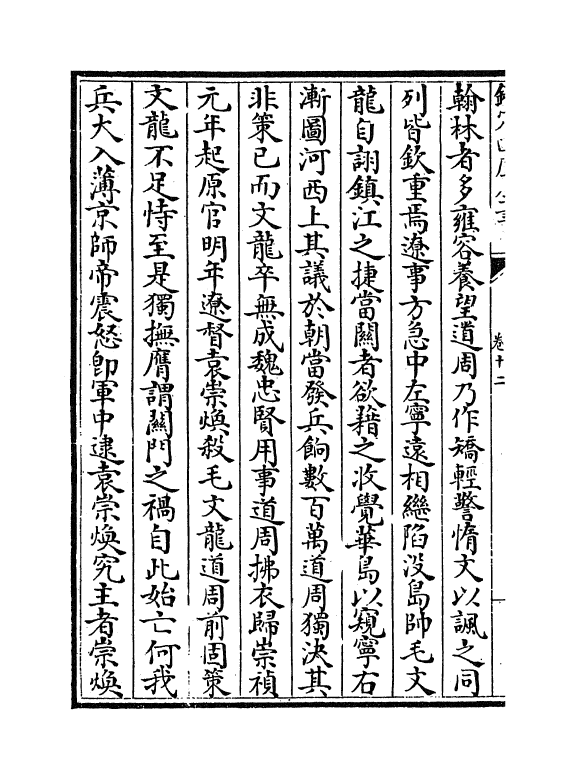 欽定四庫全書
卷十二
翰林者多雍容養望道周乃作矯輕警惰文以諷之同
列皆欽重焉遼事方急中左寧遠相繼陷没島帥毛文
龍自詡鎮江之捷當關者欲藉之收覺華島以窺寧右
漸圖河西上其議於朝當發兵餉數百萬道周獨決其
非策已而文龍卒無成魏忠賢用事道周拂衣歸崇禎
元年起原官明年遼督袁崇煥殺毛文龍道周前固策
文龍不足恃至是獨撫膺謂關門之禍自此始亡何我
兵大入薄京師帝震怒卽軍中逮袁崇煥究主者崇煥